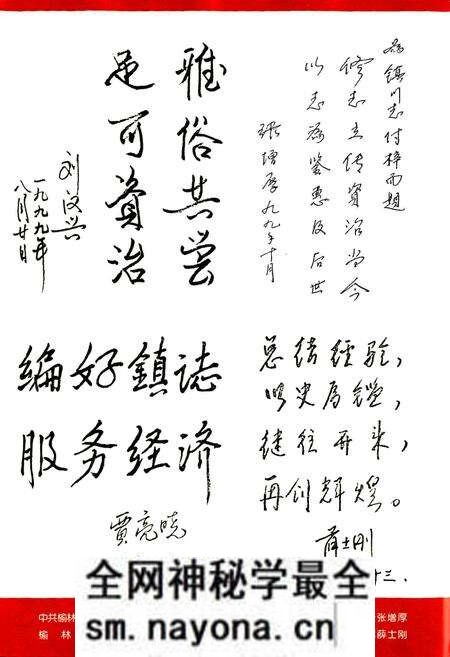 为镇川志付梓而题
修志立传资治当今
以志为鉴惠及后世
张增厚九九年十月
雅俗共尝
足可资治
刘汉兴
一九九九年
八月廿日
编好鎮誌
服务经済
贾亮晓
总结经验，
以史为鑑，
继往开来，
再创辉煌。
薛士刚
十三.
全网神秘学最全
sm.nayona.cn
中共榆林
张增厚
榆林
薛士刚